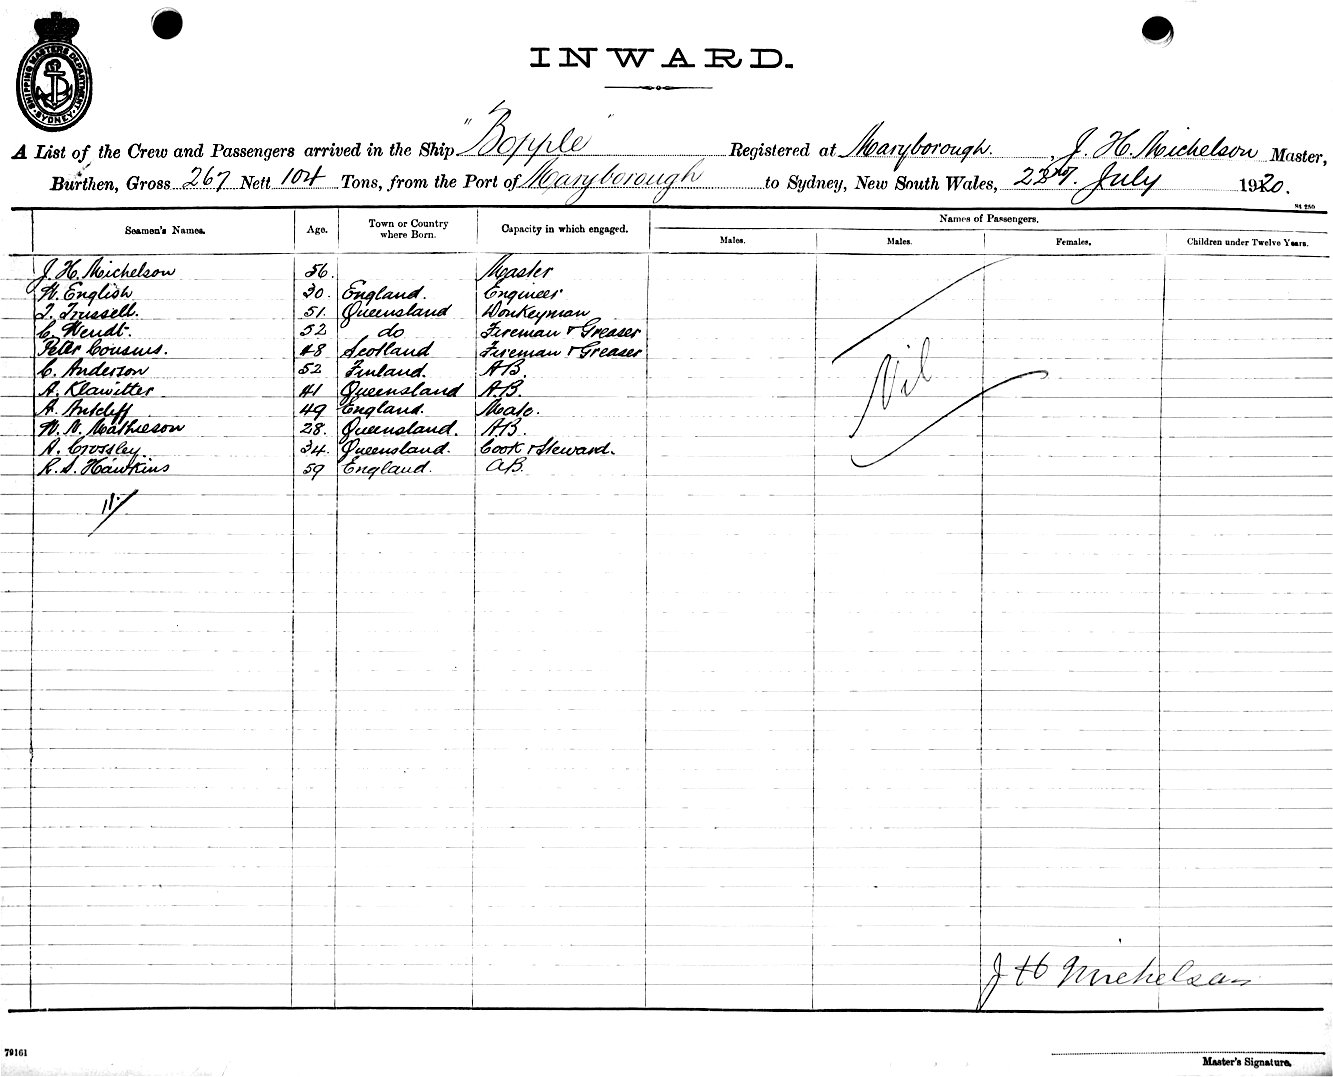 SHIPPING MASTERS DEPARTMENT SYDNEY
INWARD.
A List of the Crew and Passengers arrived in the Ship "Bopple" Registered at Maryborough. , J. H. Michelson Master,
Burthen, Gross 267 Nett 104 Tons, from the Port of Maryborough to Sydney, New South Wales, July 1920.
Seamen's Names. Age. Town or Country where Born. Capacity in which engaged. Names of Passengers.
Males. Males. Females. Children under Twelve Years.
J. H. Michelson 56. Master
W. English 30. England. Engineer
T. Trussell. 51. Queensland Donkeyman
C. Wendt. 52 do Fireman & Greaser
Peter Cousins. 48 Scotland Fireman & Greaser
C. Anderson 52 Finland. A.B.
A. Klawitter 41 Queensland A.B.
A. Antcliff 49 England. Mate.
W. N. Mathieson 28. Queensland. A.B.
A. Crossley. 34. Queensland. Cook & Steward.
R. S. Hawkins 59 England. A.B.
11
Nil
J H Michelson
79161
Master's Signature.